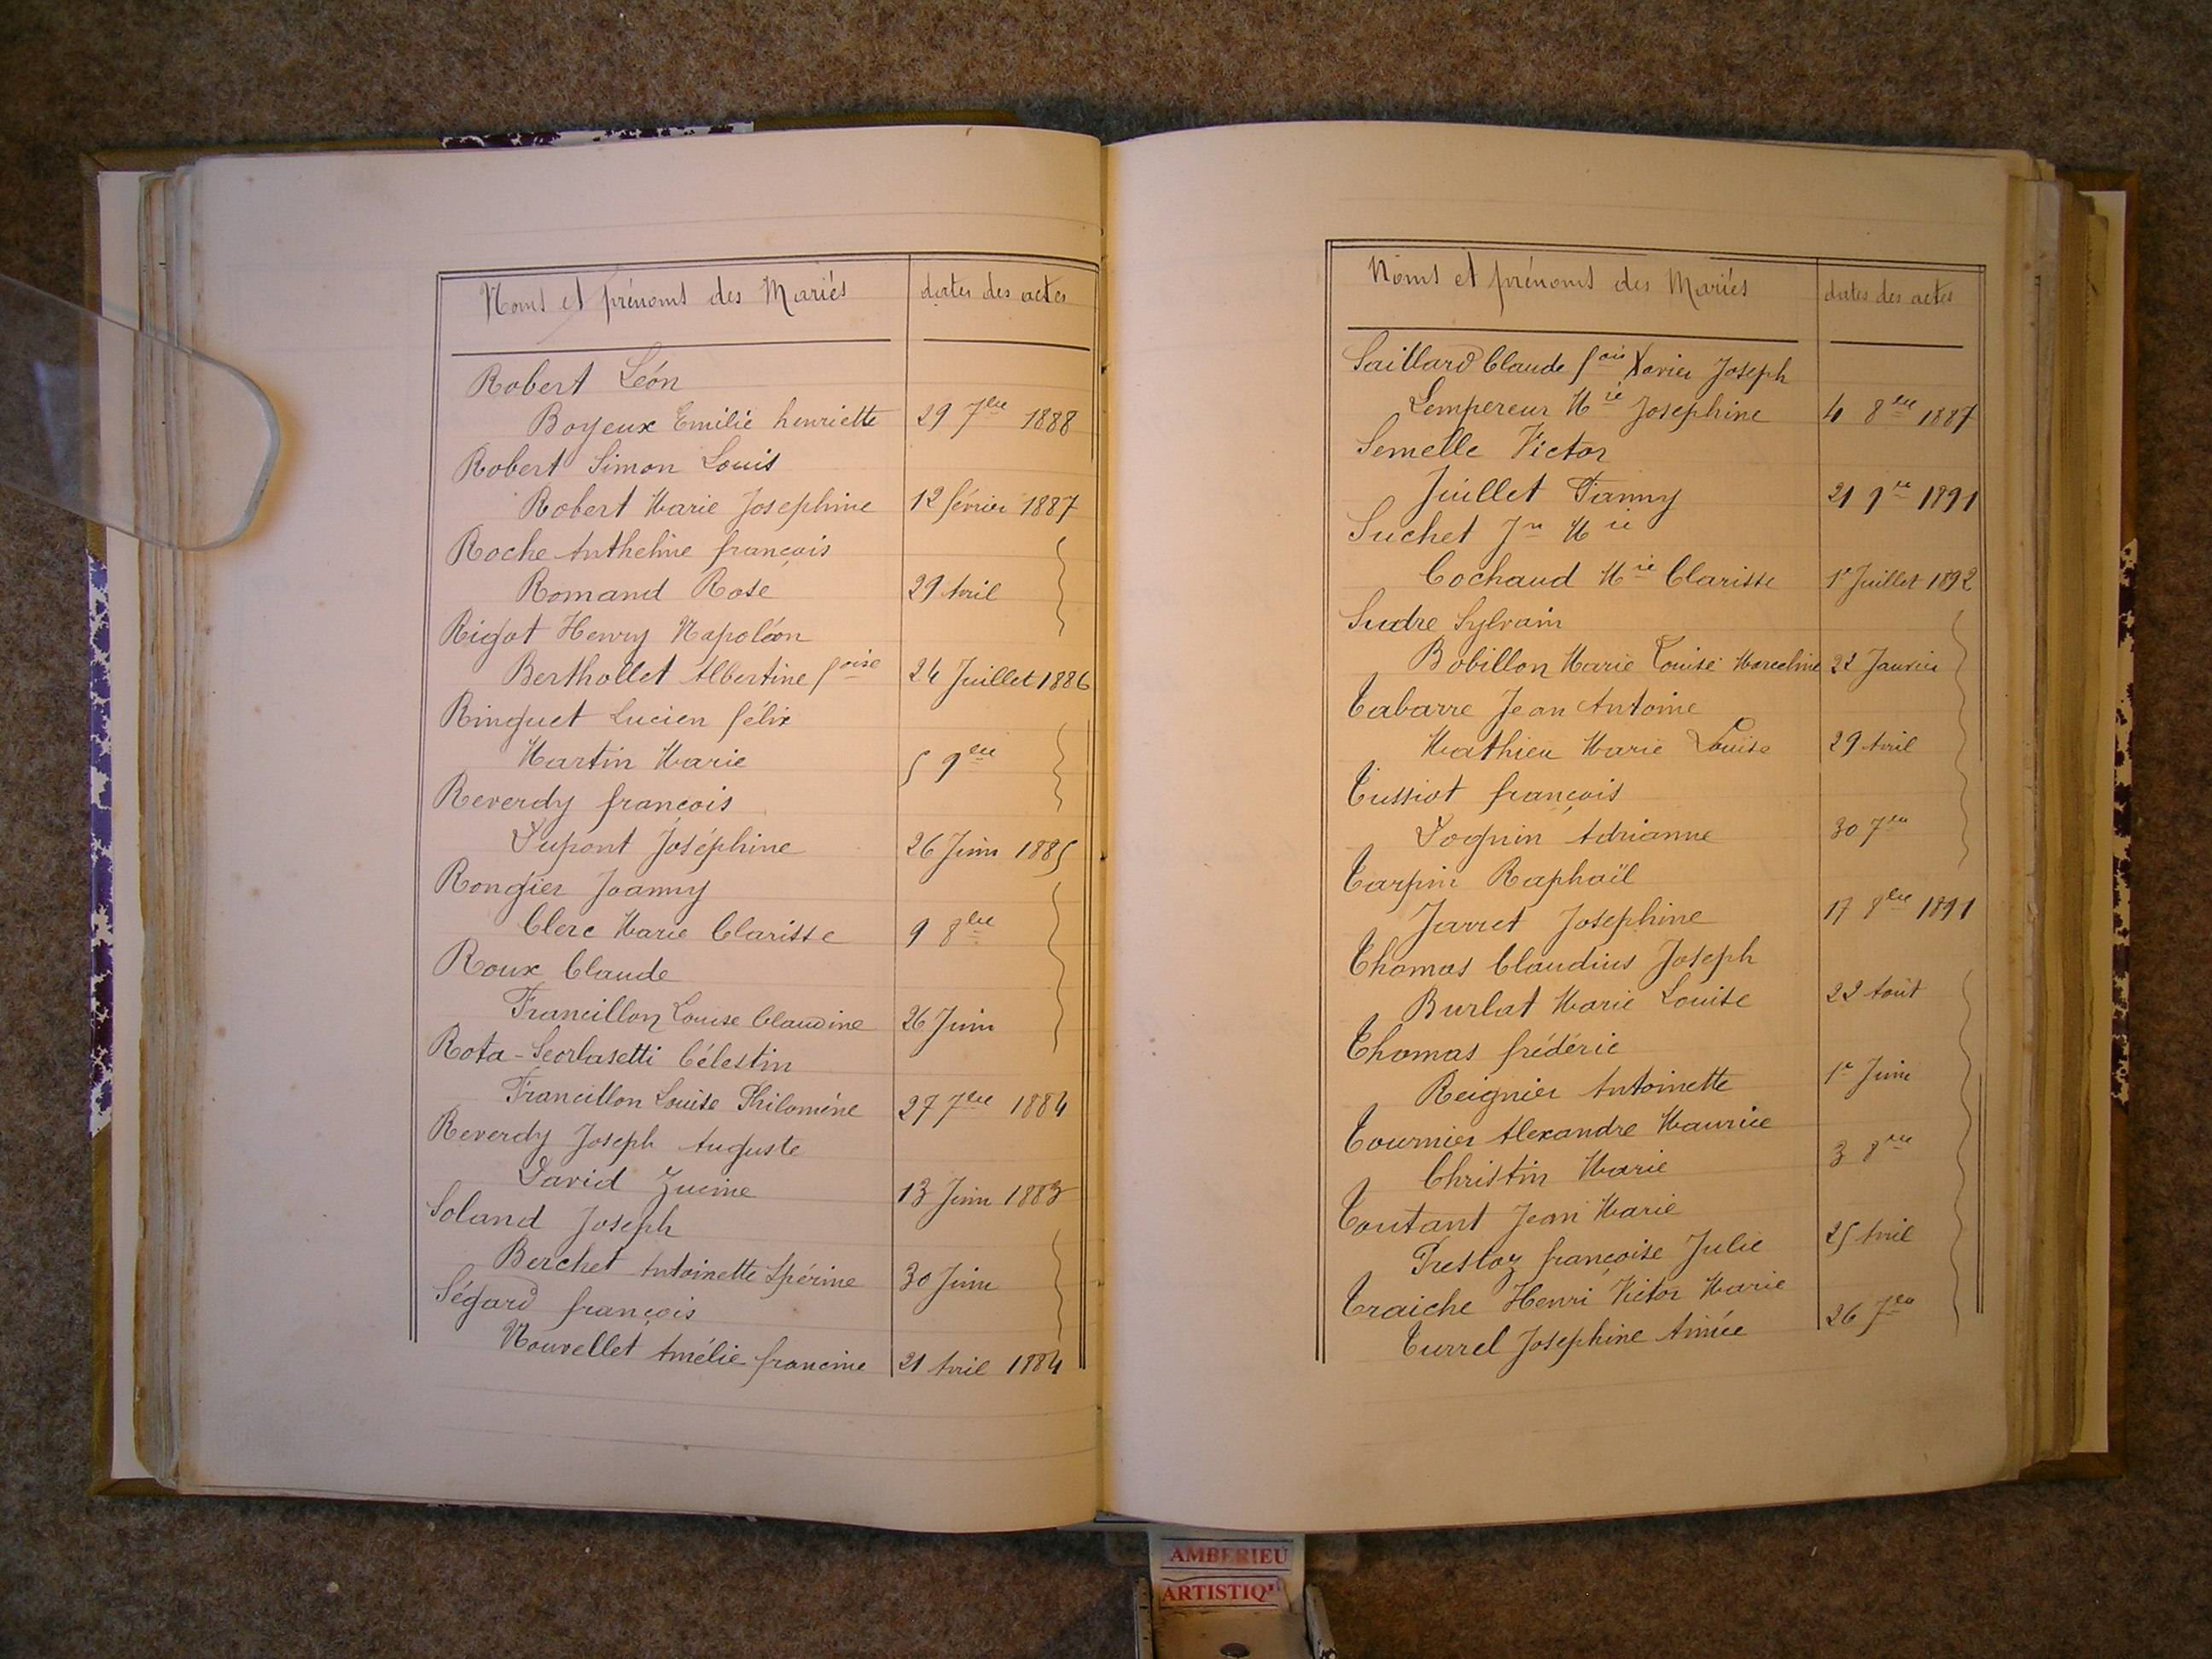 Noms et prénoms des Mariés dates des actes
Robert Léon
Boyeux Emilie henriette 29 7bre 1888
Robert Simon Louis
Robert Marie Josephine 12 février 1887
Roche Anthelme françois
Romand Rose 29 Avril
Rigot Henry Napoléon
Berthollet Albertine foise 24 Juillet 1886
Ringuet Lucien félix
Martin Marie 5 9bre
Reverdy françois
Dupont Joséphine 26 Juin 1885
Rongier Joanny
Clerc Marie Clarisse 9 8bre
Roux Claude
Francillon Louise Claudine 26 Juin
Rota-Scorlasetti Célestin
Francillon Louise Philomène 27 7bre 1884
Reverdy Joseph Auguste
David Zurine 13 Juin 1883
Soland Joseph
Berchet Antoinette Spérine 30 Juin
Ségard françois
Nouvellet Amélie francine 21 Avril 1884
Noms et prénoms des Mariés dates des actes
Saillard Claude fois Xavier Joseph
Lempereur Mie Josephine 4 8bre 1887
Semelle Victor
Juillet Fanny 21 9re 1891
Suchet Jn Mie
Cochaud Mie Clarisse 1r Juillet 1892
Sudre Sylvain
Bobillon Marie Louise Marceline 22 Janvier
Tabarre Jean Antoine
Mathieu Marie Louise 29 Avril
Tussiot françois
Dognin Adrianne 30 7re
Tarpin Raphaïl
Jarret Josephine 17 8bre 1891
Thomas Claudius Joseph
Burlat Marie Louise 22 Août
Thomas frédéric
Reignier Antoinette 1r Juin
Tournier Alexandre Maurice
Christin Marie 3 8re
Toutant Jean Marie
Prestoz françoise Julie 25 Avril
Traiche Henri Victor Marie
Turrel Josephine Aimée 26 7re
AMBERIEU
ARTISTIQ